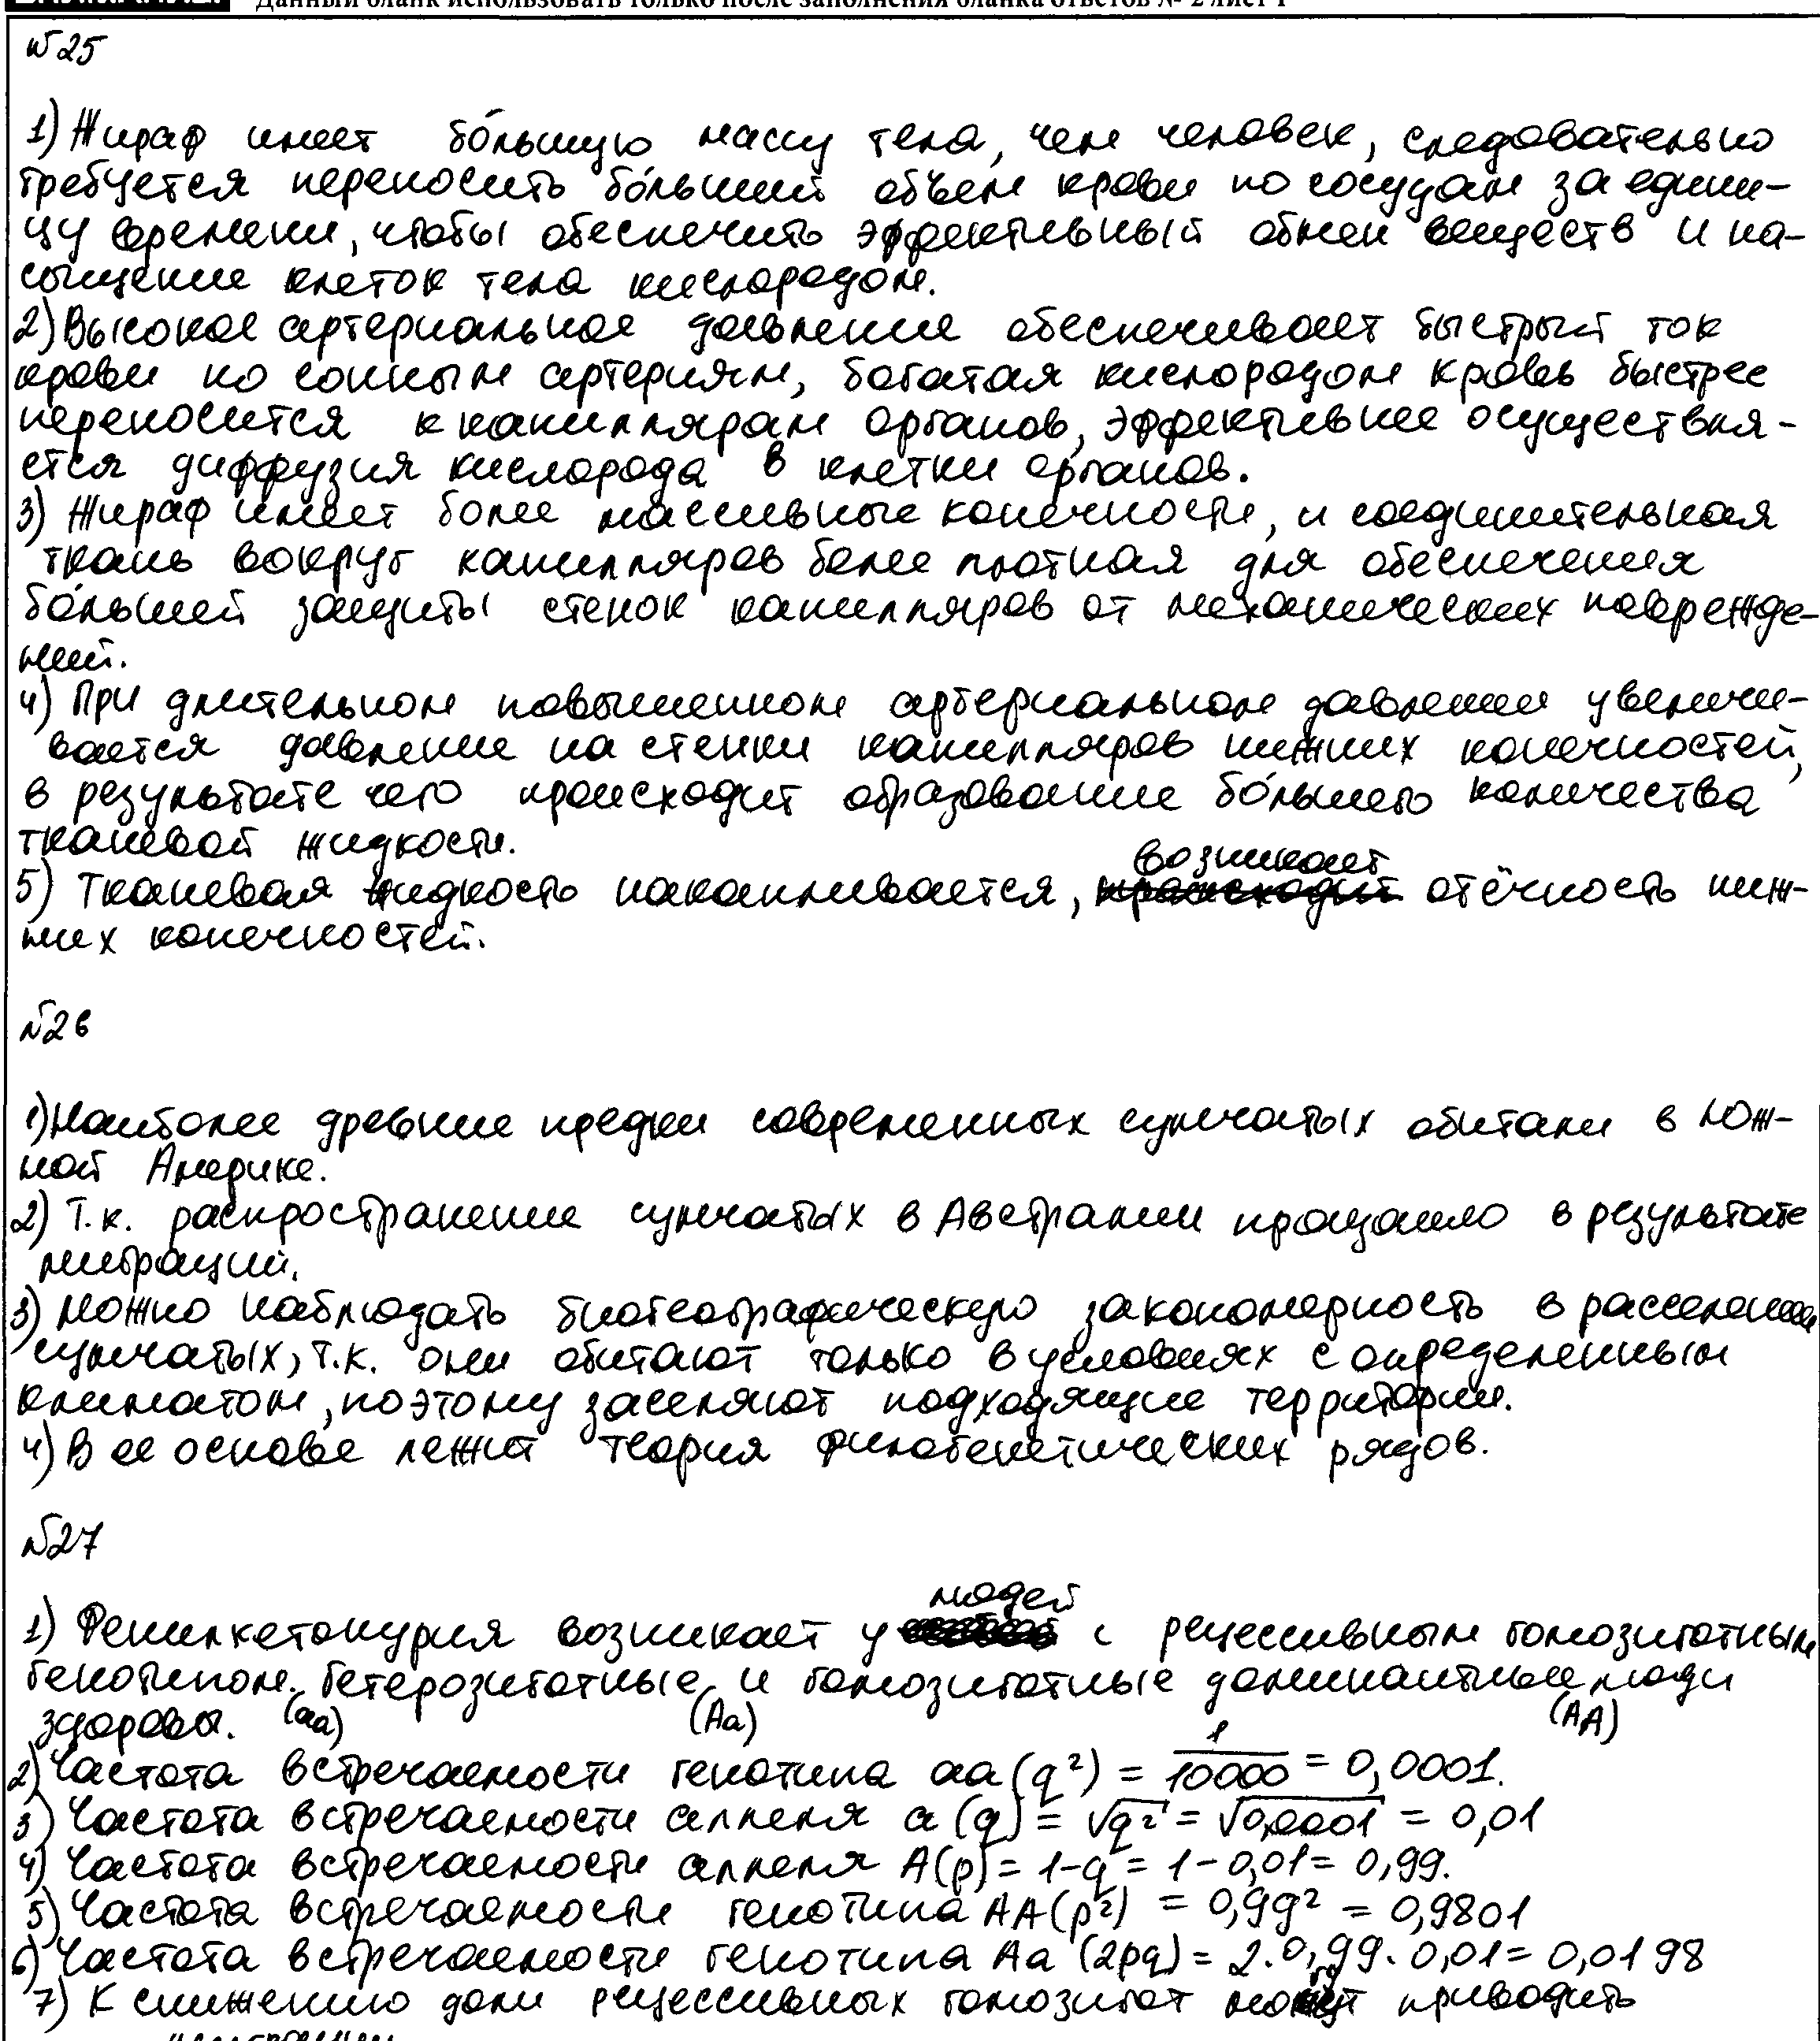 Данный бланк использовать только после заполнения бланка ответов № 2 лист 1
№25
1) Жираф имеет бо́льшую массу тела, чем человек, следовательно
требуется переносить бо́льший объем крови по сосудам за едини-
цу времени, чтобы обеспечить эффективный обмен веществ и на-
сыщение клеток тела кислородом.
2) Высокое артериальное давление обеспечивает быстрый ток
крови по сонным артериям, богатая кислородом кровь быстрее
переносится к капиллярам органов, эффективнее осуществля-
ется диффузия кислорода в клетки органов.
3) Жираф имеет более массивные конечности, и соединительная
ткань вокруг капилляров более плотная для обеспечения
бо́льшей защиты стенок капилляров от механических поврежде-
ний.
4) При длительном повышенном артериальном давлении увеличи-
вается давление на стенки капилляров нижних конечностей,
в результате чего происходит образование бо́льшего количества
тканевой жидкости.
возникает
5) Тканевая жидкость накапливается, происходит отёчность ниж-
них конечностей.
№26
1) Наиболее древние предки современных сумчатых обитали в Юж-
ной Америке.
2) Т.к. распространение сумчатых в Австралии произошло в результате
миграций.
3) Можно наблюдать биогеографическую закономерность в расселении
сумчатых, т.к. они обитают только в условиях с определенным
климатом, поэтому заселяют подходящие территории.
4) В ее основе лежит теория филогенетических рядов.
№27
людей
1) Фенилкетонурия возникает у с рецессивным гомозиготным
генотипом. Гетерозиготные и гомозиготные доминантные люди
здоровы. (аа) (Аа) (АА)
2) Частота встречаемости генотипа аа (q²) = 1/10000 = 0,0001.
3) Частота встречаемости аллеля а (q) = √q² = √0,0001 = 0,01
4) Частота встречаемости аллеля А(p) = 1-q = 1-0,01 = 0,99.
5) Частота встречаемости генотипа АА(p²) = 0,99² = 0,9801
6) Частота встречаемости генотипа Аа (2pq) = 2·0,99·0,01 = 0,0198
7) К снижению доли рецессивных гомозигот могут приводить